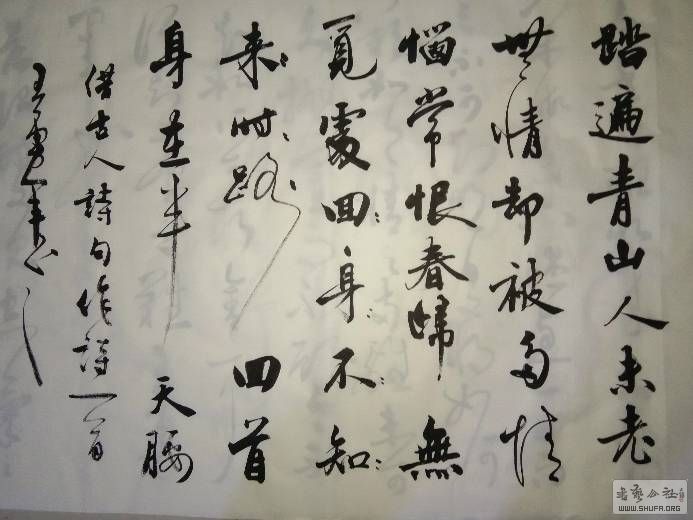 踏遍青山人未老
無情却被多情
惱常恨春歸無
覓處回身不知
来时路回首
身在半天腰
借古人詩句作詩一首
书艺公社
WWW.SHUFA.ORG